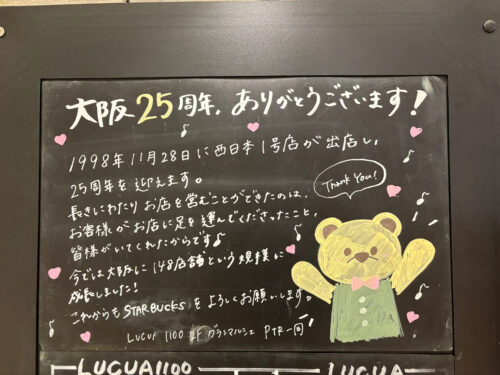 大阪25周年、ありがとうございます!
1998年11月28日に西日本1号店が出店し、
25周年を迎えます。
長きにわたりお店を営むことができたのは、
お客様がお店に足を運んでくださったこと、
皆様がいてくれたからです♪
今では大阪に148店舗という規模に
成長しました!
これからもSTARBUCKSをよろしくお願いします。
LUCUA 1100 2F グランマルシェ PTR一同
Thank You!
LUCUA1100
LUCUA